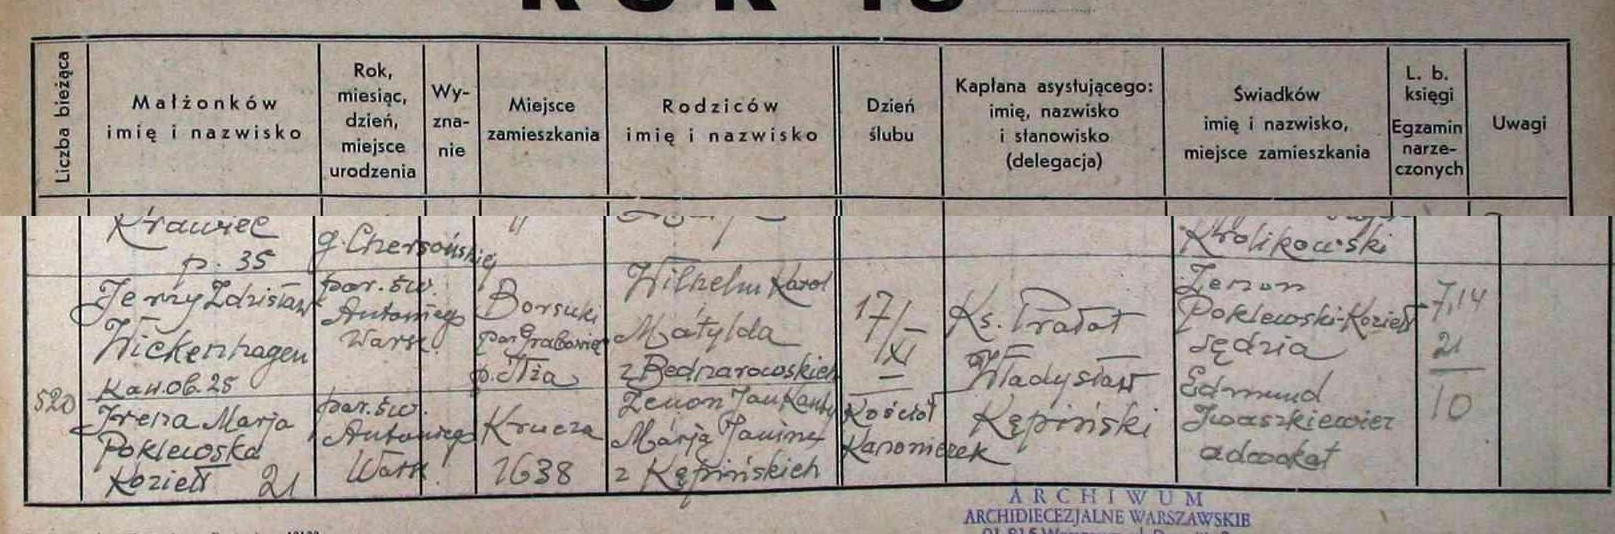 ROK 19
Liczba bieżąca
Małżonków
imię i nazwisko
Rok,
miesiąc,
dzień,
miejsce
urodzenia
Wy-
zna-
nie
Miejsce
zamieszkania
Rodziców
imię i nazwisko
Dzień
ślubu
Kapłana asystującego:
imię, nazwisko
i stanowisko
(delegacja)
Świadków
imię i nazwisko,
miejsce zamieszkania
L. b.
księgi
Egzamin
narze-
czonych
Uwagi
Krawiec
p. 35
g. Chersońskiej
"
Królikowski
520
Jerzy Zdzisław
Wickenhagen
Kaw. ob. 25
Irena Marja
Poklewska
Koziełł 21
par. św.
Antoniego
Warsz.
par. św.
Antoniego
Warsz.
Borsuki
par. Grabowiec
p. Iłża
Krucza
1638
Wilhelm Karol
Matylda
z Bednarowskich
Zenon Jan Kanty
Marja Janina
z Kępińskich
17/XI
Kościół
Kanoniczek
Ks. Prałat
Władysław
Kępiński
Zenon
Poklewski-Koziełł
sędzia
Edmund
Iwaszkiewicz
adwokat
7,14
21
10
ARCHIWUM
ARCHIDIECEZJALNE WARSZAWSKIE